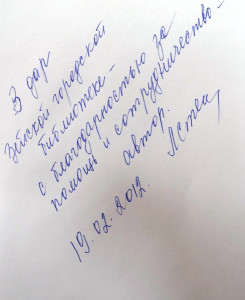 В дар
Зейской городской
библиотеке -
с благодарностью за
помощь и сотрудничество -
автор.
19.02.2012.